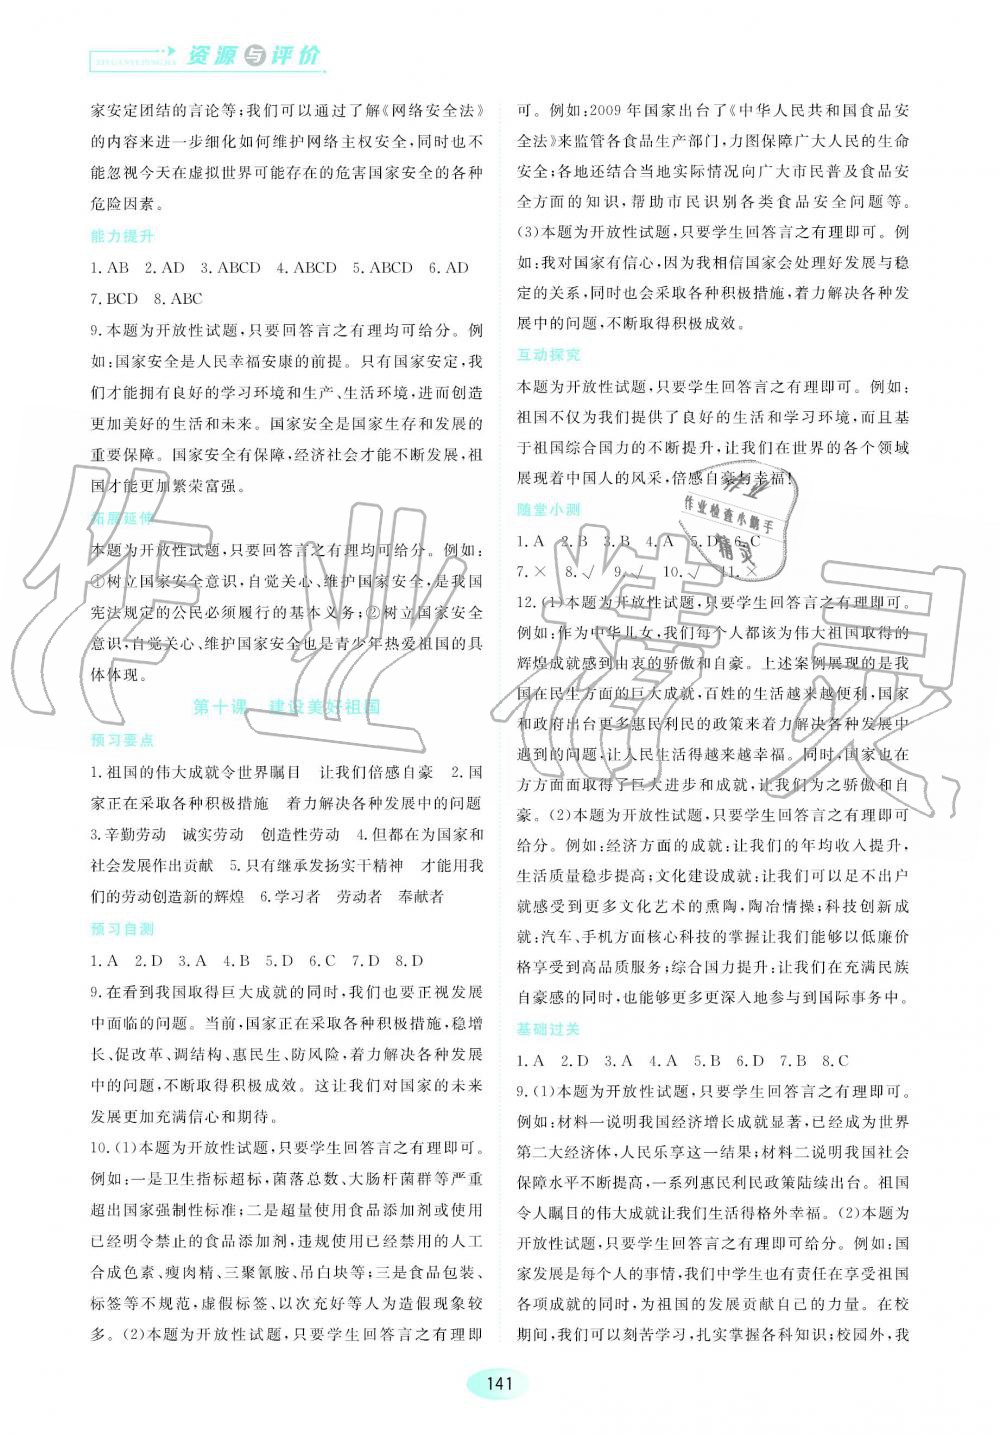 ZIYUANYUPINGJIA
资源与评价
家安定团结的言论等;我们可以通过了解《网络安全法》
的内容来进一步细化如何维护网络主权安全,同时也不
能忽视今天在虚拟世界可能存在的危害国家安全的各种
危险因素。
能力提升
1. AB 2. AD 3. ABCD 4. ABCD 5. ABCD 6. AD
7. BCD 8. ABC
9. 本题为开放性试题,只要回答言之有理均可给分。例
如:国家安全是人民幸福安康的前提。只有国家安定,我
们才能拥有良好的学习环境和生产、生活环境,进而创造
更加美好的生活和未来。国家安全是国家生存和发展的
重要保障。国家安全有保障,经济社会才能不断发展,祖
国才能更加繁荣富强。
拓展延伸
本题为开放性试题,只要回答言之有理均可给分。例如:
①树立国家安全意识,自觉关心、维护国家安全,是我国
宪法规定的公民必须履行的基本义务;②树立国家安全
意识,自觉关心、维护国家安全也是青少年热爱祖国的具
体体现。
第十课 建设美好祖国
预习要点
1. 祖国的伟大成就令世界瞩目 让我们倍感自豪 2. 国
家正在采取各种积极措施 着力解决各种发展中的问题
3. 辛勤劳动 诚实劳动 创造性劳动 4. 但都在为国家和
社会发展作出贡献 5. 只有继承发扬实干精神 才能用我
们的劳动创造新的辉煌 6. 学习者 劳动者 奉献者
预习自测
1. A 2. D 3. A 4. B 5. D 6. C 7. D 8. D
9. 在看到我国取得巨大成就的同时,我们也要正视发展
中面临的问题。当前,国家正在采取各种积极措施,稳增
长、促改革、调结构、惠民生、防风险,着力解决各种发展
中的问题,不断取得积极成效。这让我们对国家的未来
发展更加充满信心和期待。
10. (1)本题为开放性试题,只要学生回答言之有理即可。
例如:一是卫生指标超标,菌落总数、大肠杆菌群等严重
超出国家强制性标准;二是超量使用食品添加剂或使用
已经明令禁止的食品添加剂,违规使用已经禁用的人工
合成色素、瘦肉精、三聚氰胺、吊白块等;三是食品包装、
标签等不规范,虚假标签、以次充好等人为造假现象较
多。(2)本题为开放性试题,只要学生回答言之有理即
可。例如:2009 年国家出台了《中华人民共和国食品安
全法》来监管各食品生产部门,力图保障广大人民的生命
安全;各地还结合当地实际情况向广大市民普及食品安
全方面的知识,帮助市民识别各类食品安全问题等。
(3)本题为开放性试题,只要学生回答言之有理即可。例
如:我对国家有信心,因为我相信国家会处理好发展与稳
定的关系,同时也会采取各种积极措施,着力解决各种发
展中的问题,不断取得积极成效。
互动探究
本题为开放性试题,只要学生回答言之有理即可。例如:
祖国不仅为我们提供了良好的生活和学习环境,而且基
于祖国综合国力的不断提升,让我们在世界的各个领域
展现着中国人的风采,倍感自豪与幸福!
随堂小测
1. A 2. B 3. B 4. A 5. D 6. C
7. × 8. √ 9. √ 10. √ 11. ×
12. (1)本题为开放性试题,只要学生回答言之有理即可。
例如:作为中华儿女,我们每个人都该为伟大祖国取得的
辉煌成就感到由衷的骄傲和自豪。上述案例展现的是我
国在民生方面的巨大成就,百姓的生活越来越便利,国家
和政府出台更多惠民利民的政策来着力解决各种发展中
遇到的问题,让人民生活得越来越幸福。同时,国家也在
方方面面取得了巨大进步和成就,让我们为之骄傲和自
豪。(2)本题为开放性试题,只要学生回答言之有理即可
给分。例如:经济方面的成就:让我们的年均收入提升,
生活质量稳步提高;文化建设成就:让我们可以足不出户
就感受到更多文化艺术的熏陶,陶冶情操;科技创新成
就:汽车、手机方面核心科技的掌握让我们能够以低廉价
格享受到高品质服务;综合国力提升:让我们在充满民族
自豪感的同时,也能够更多更深入地参与到国际事务中。
基础过关
1. A 2. D 3. A 4. A 5. B 6. D 7. B 8. C
9. (1)本题为开放性试题,只要学生回答言之有理即可。
例如:材料一说明我国经济增长成就显著,已经成为世界
第二大经济体,人民乐享这一结果;材料二说明我国社会
保障水平不断提高,一系列惠民利民政策陆续出台。祖国
令人瞩目的伟大成就让我们生活得格外幸福。(2)本题为
开放性试题,只要学生回答言之有理即可给分。例如:国
家发展是每个人的事情,我们中学生也有责任在享受祖国
各项成就的同时,为祖国的发展贡献自己的力量。在校
期间,我们可以刻苦学习,扎实掌握各科知识;校园外,我
141
作业精灵
作业
作业检查小帮手
精灵